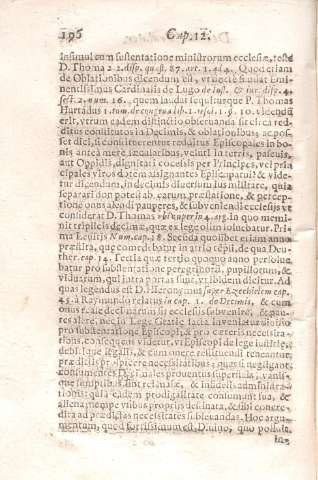 196 Cap. 12.
insimul cum sustentatione ministrorum ecclesiæ, teste
D. Thoma 2 2. disp. quæst. 87. art. 1. ad 4. Quod etiam
de Oblationibus dicendum est, vt docte firmat Emi-
nentissimus Cardinalis de Lugo de iust. & iur. disp. 4.
sect. 2. num. 16. quem laudat sequiturque P. Thomas
Hurtadus 1. tom. de congrua lib. 1. resol. 1. §. 10. videndũ
erit, vtrum eadem distinctio obseruanda sit circa red-
ditus constitutos in Decimis, & oblationibus, ac pos-
set dici, si constituerentur redditus Episcopales in bo-
nis antea mere sæcularibus, veluti in terris, pascuis,
aut Oppidis, dignitati concessis per Principes, vel prin
cipales viros dotem assignantes Episcopatui? & vide-
tur dicendum, in decimis diuersum ius militare, quia
separari non potest ab earum præstatione, & percep-
tione onus alendi pauperes, & subueniendi ecclesiis vt
considerat D. Thomas vbi nuper in 4. arg. In quo memi-
nit triplicis decimæ, quæ ex lege olim soluebatur. Pri-
ma Leuitis Num. cap. 18. Secunda quolibet etiam anno
præstita, quæ comedebatur in atrio tēpli, de qua Deu-
ther. cap. 14. Tertia quæ tertio quoquo anno persolue
batur pro substentatione peregrinorũ, pupillorum, &
viduarum, qui intra portas sunt, vt ibidem dicitur. Ad
quas legendus est D. Hieronymus super Ezechielem cap.
45. à Raymundo relatus in cap. 1. de Decimis, & cum
onus reale decimarum sit ecclesiis subuenire, & pau-
res alere, nec in Lege Gratiæ facta inueniatur diuisio
pro substentatione Episcopi, & pro cæteris necessita-
tibus, consequens videtur, vt Episcopi de lege iustitiæ,
debitique legalis, & cum onere restituendi teneantur,
prædictis propicere necessitatibus; quas si negligant,
consumentes Decimales prouentus superfluis, vanis-
que sumptibus sint rei malæ, & infidelis administra-
tionis: quia eadem prodigalitate consumunt sua, &
aliena nempe vsibus proprijs destinata, & sibi concre-
dita ad prædictas necessitates subleuandas. Hoc argu-
mentum, quod fortissimum est, Diuino, quo pollule,